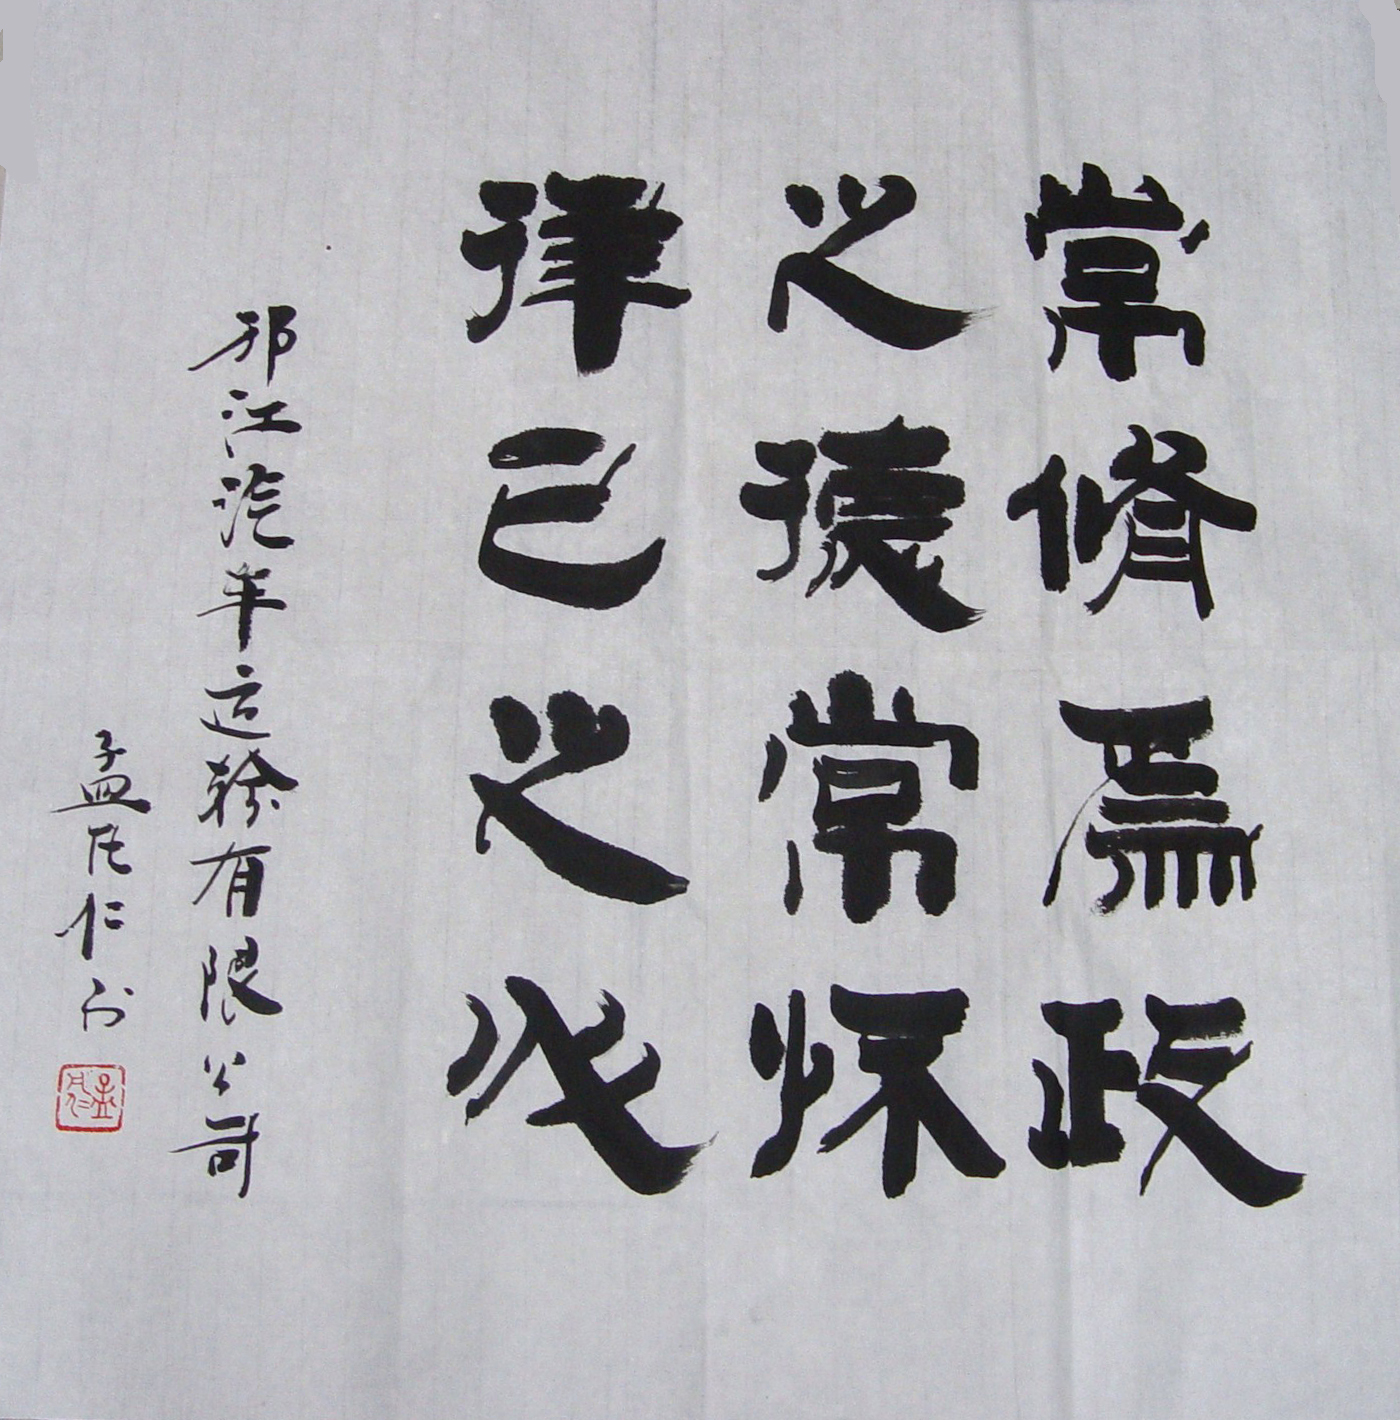 常修為政
之德常怀
律己之心
邗江汽车运输有限公司
孟凡仁书